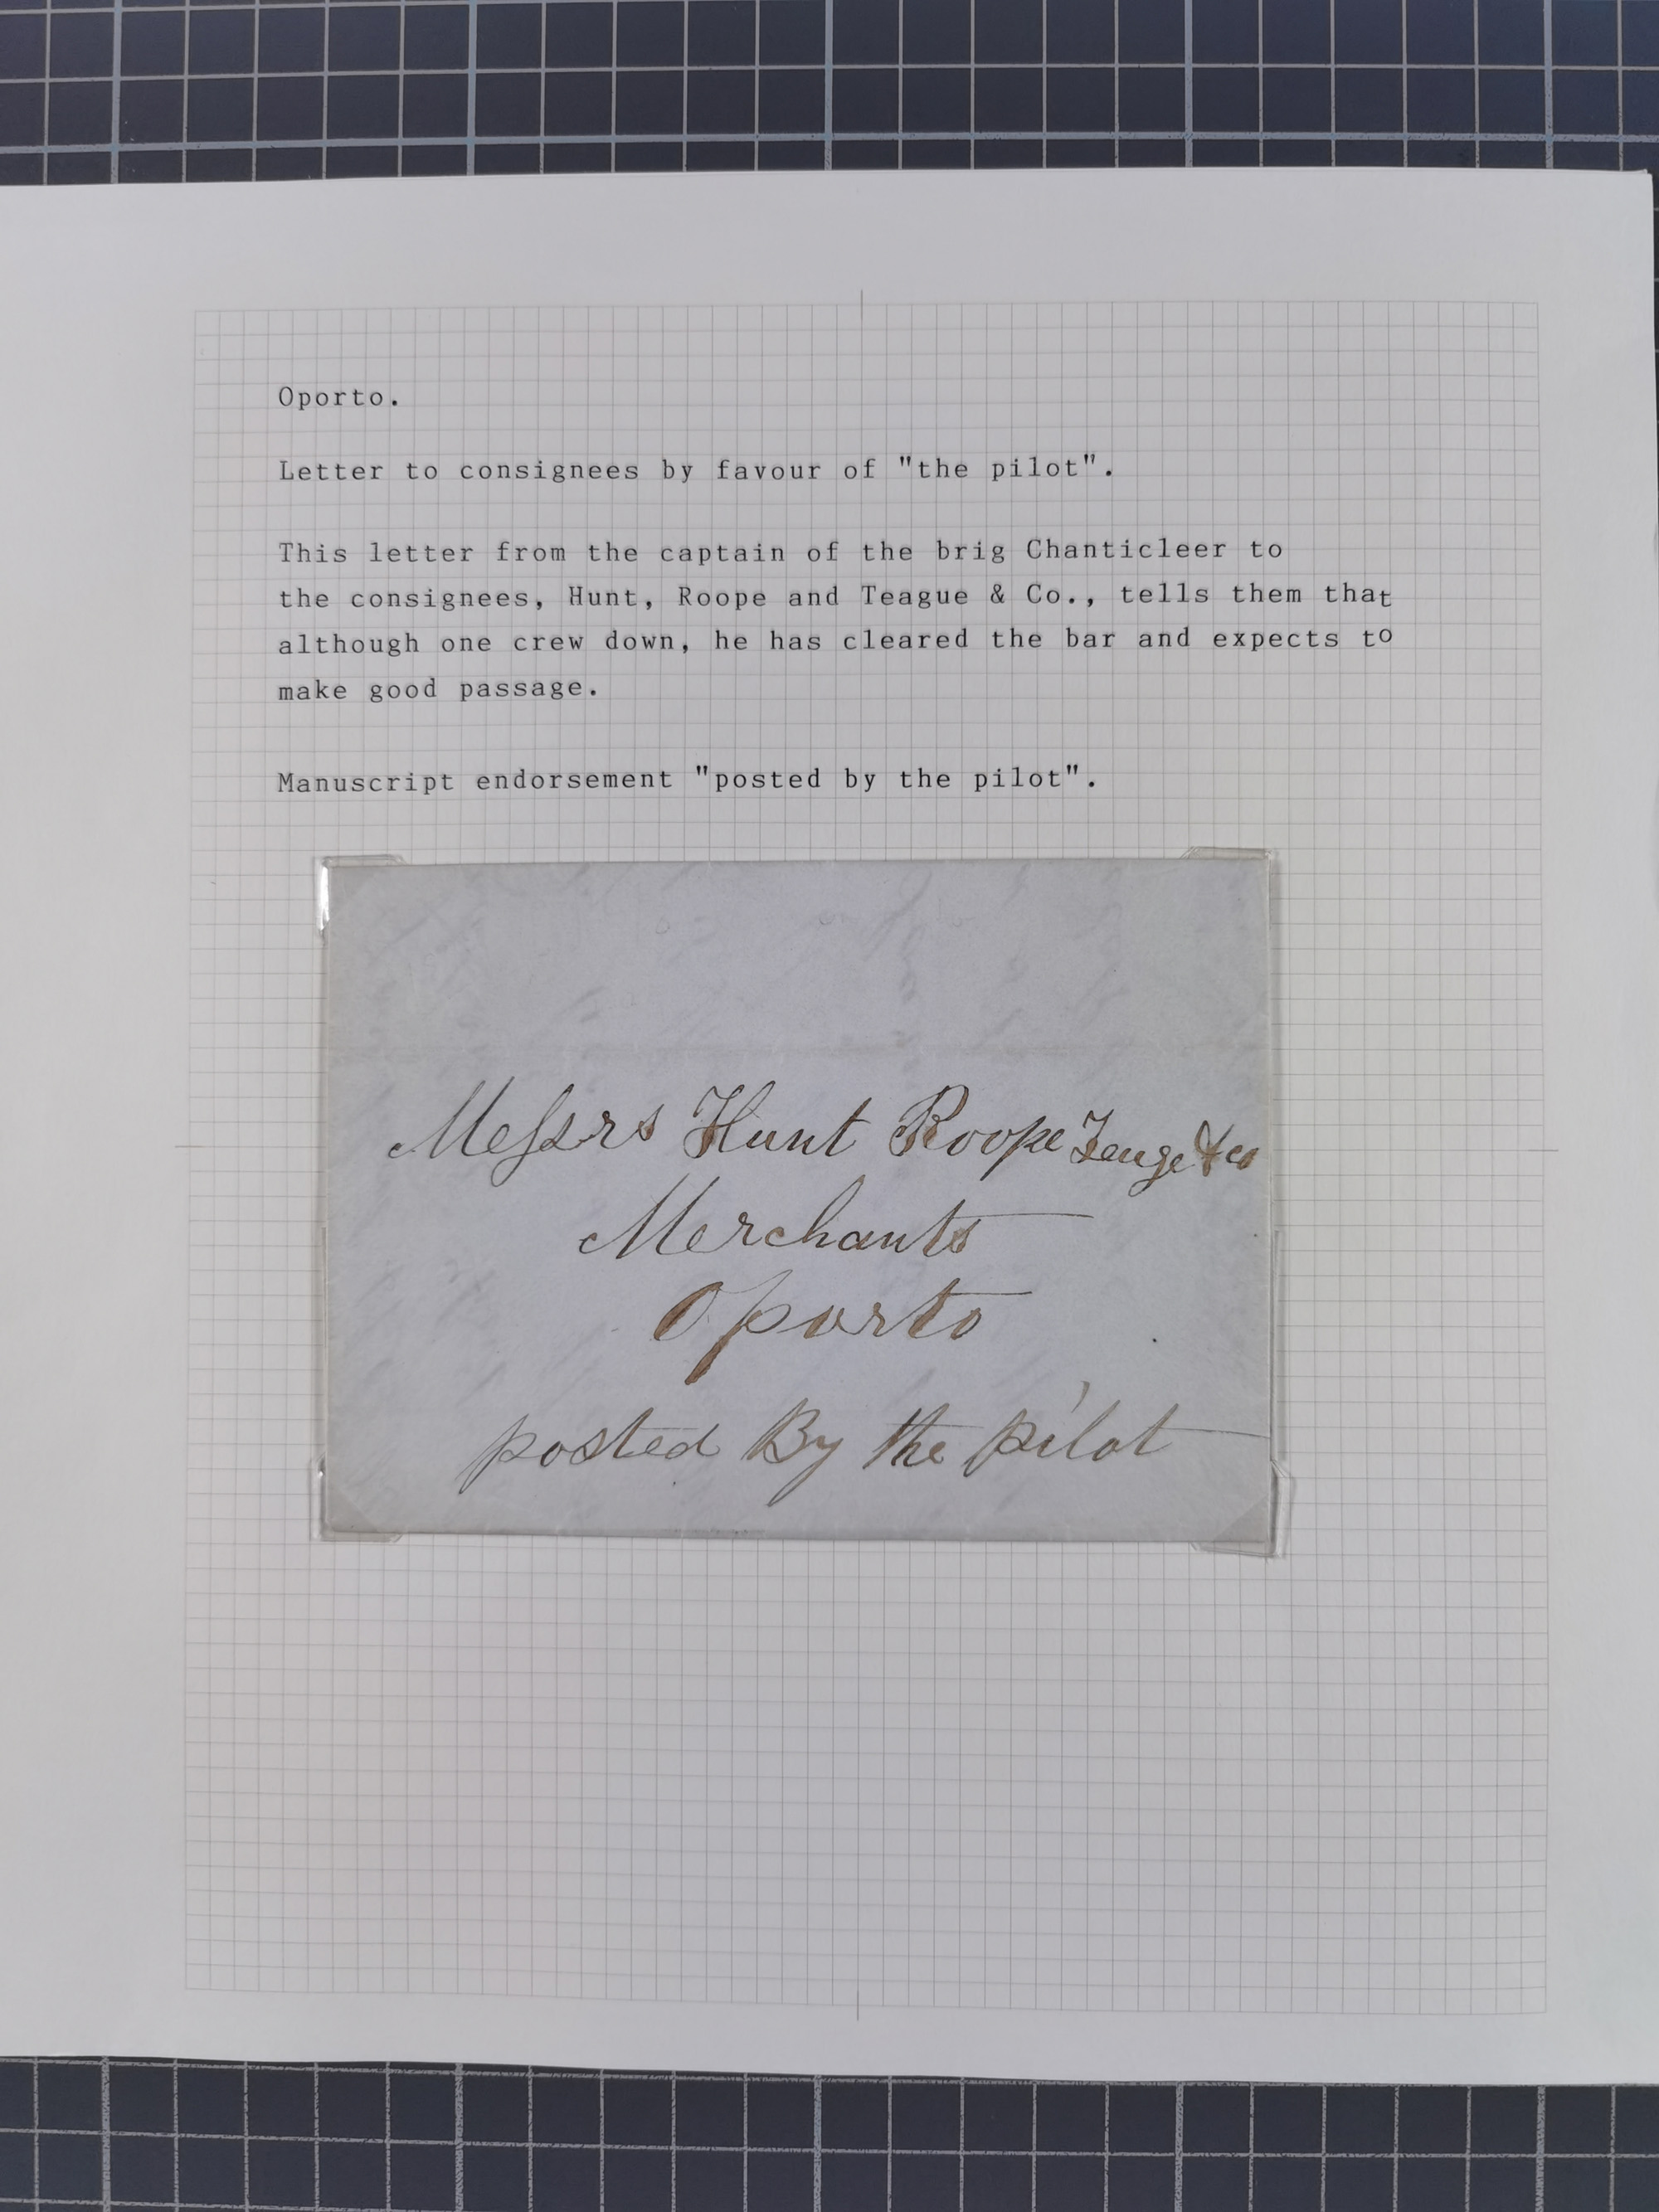 Oporto.
Letter to consignees by favour of "the pilot".
This letter from the captain of the brig Chanticleer to
the consignees, Hunt, Roope and Teague & Co., tells them that
although one crew down, he has cleared the bar and expects to
make good passage.
Manuscript endorsement "posted by the pilot".
Messrs Hunt Roope Teage & co
Merchants
Oporto
posted By the pilot